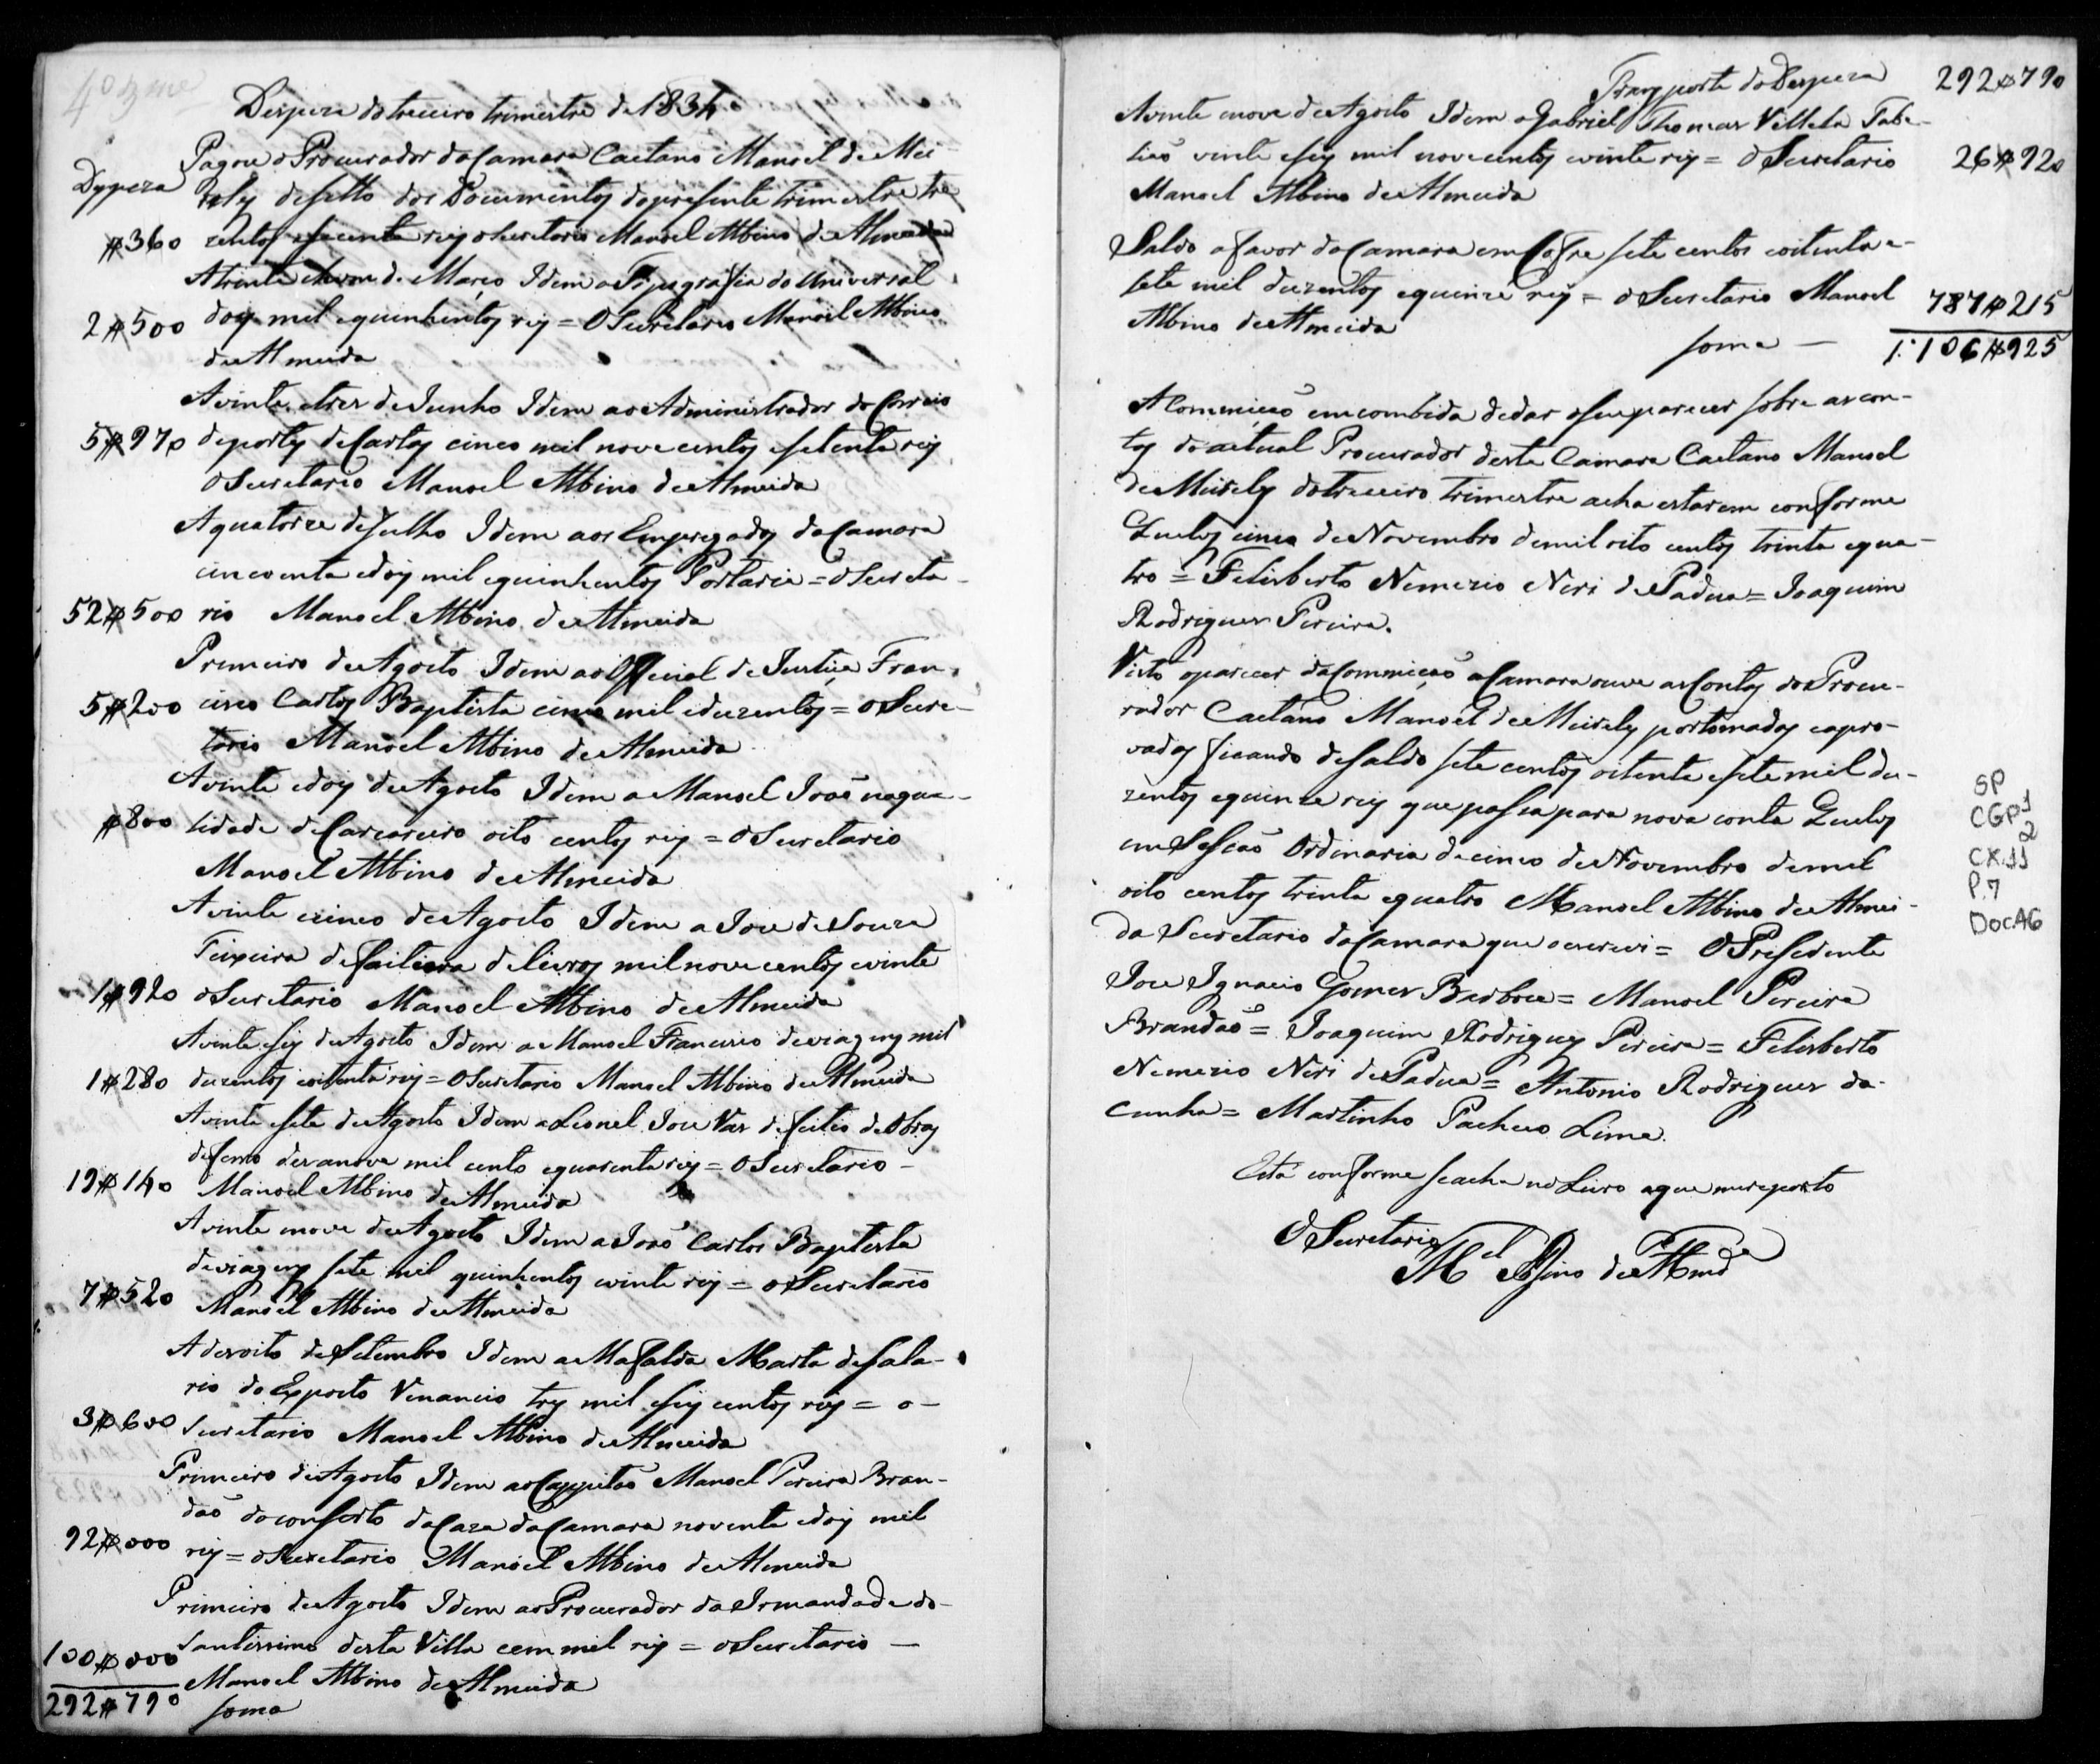 4º 3me
Despeza do treceiro trimestre de 1834
Pagou o Procurador da Camara Caetano Manoel de Mei-
Dispeza relles de sello dos Documentos do presente trimestre tre
#360 zentos e secenta reis o Secretario Manoel Albino de Almeida
A trinta e hum de Março Idem a Tipografia do Universal
2#500 dois mil e quinhentos reis = O Secretario Manoel Albino
de Almeida
A vinte e tres de Junho Idem ao Administrador do Correio
5#970 de portes de Cartas cinco mil nove centos e setenta reis
O Secretario Manoel Albino de Almeida
A quatorze de Julho Idem aos Empregados da Camara
cincoenta e dois mil e quinhentos Portaria = O Secreta-
52#500 rio Manoel Albino de Almeida
Primeiro de Agosto Idem ao Official de Justiça Fran-
5#200 cisco Carlos Baptista cinco mil e duzentos = o Secre-
tario Manoel Albino de Almeida
A vinte e dois de Agosto Idem a Manoel João na qua-
#800 lidade de Carcereiro oito centos reis = O Secretario
Manoel Albino de Almeida
A vinte e cinco de Agosto Idem a Joze de Souza
Teixeira de feitiora de livros mil nove centos e vinte
1#920 o Secretario Manoel Albino de Almeida
A vinte e seis de Agosto Idem a Manoel Francisco de viagens mil
1#280 duzentos e oitenta reis = O Secretario Manoel Albino de Almeida
A vinte e sete de Agosto Idem a Leonel Joze Vas de feitio de Obras
de ferro dezanove mil cento e quarenta reis = O Secretario -
19#140 Manoel Albino de Almeida
A vinte e nove de Agosto Idem a João Carlos Baptista
de viagens sete mil quinhentos e vinte reis = o Secretario
7#520 Manoel Albino de Almeida
A dezoito de Setembro Idem a Mafalda Marta de sala-
rio do Exposto Venancio tres mil e seis centos reis = o -
3#600 Secretario Manoel Albino de Almeida
Primeiro de Agosto Idem ao Cappitão Manoel Pereira Bran-
dão do conserto da Caza da Camara noventa e dois mil
92#000 reis = o Secretario Manoel Albino de Almeida
Primeiro de Agosto Idem ao Procurador da Irmandade do
100#000 Santissimo desta Villa cem mil reis = o Secretario -
Manoel Albino de Almeida
292#790 soma
Transporte da Despeza 292#790
A vinte e nove de Agosto Idem a Gabriel Thomas Villela Tabe-
lião vinte e seis mil nove centos e vinte reis = O Secretario 26#920
Manoel Albino de Almeida
Saldo a favor da Camara em Cofre sete centos e oitenta e-
sete mil duzentos e quinze reis = o Secretario Manoel 787#215
Albino de Almeida
soma - 1:106#925
A Commição emcombida de dar o seu parecer sobre as con-
tas do actual Procurador desta Camara Caetano Manoel
de Meirelles do treceiro trimestre acha estarem conforme
Queluz cinco de Novembro de mil oito centos trinta e qua-
tro = Felisberto Nemezio Neri de Padua = Joaquim
Rodrigues Pereira.
Visto o parecer da Commição a Camara ouve as Contas do Procu-
rador Caetano Manoel de Meirelles por tomadas e apro-
vadas ficando de saldo sete centos oitenta e sete mil du-
zentos e quinze reis que passa para nova conta Queluz
em Sessão Ordinaria de cinco de Novembro de mil
oito centos trinta e quatro Manoel Albino de Almei-
da Secretario da Camara que o escrevi = O Presedente
Joze Ignacio Gomes Barboza = Manoel Pereira
Brandão = Joaquim Rodrigues Pereira = Felisberto
Nemezio Neri de Padua = Antonio Rodrigues da
Cunha = Martinho Pacheco Lima.
Está conforme se acha no Livro a que me reporto
O Secretario
Mel Albino de Almda
SP
CGP1
2
CX.11
P.7
DOC.46